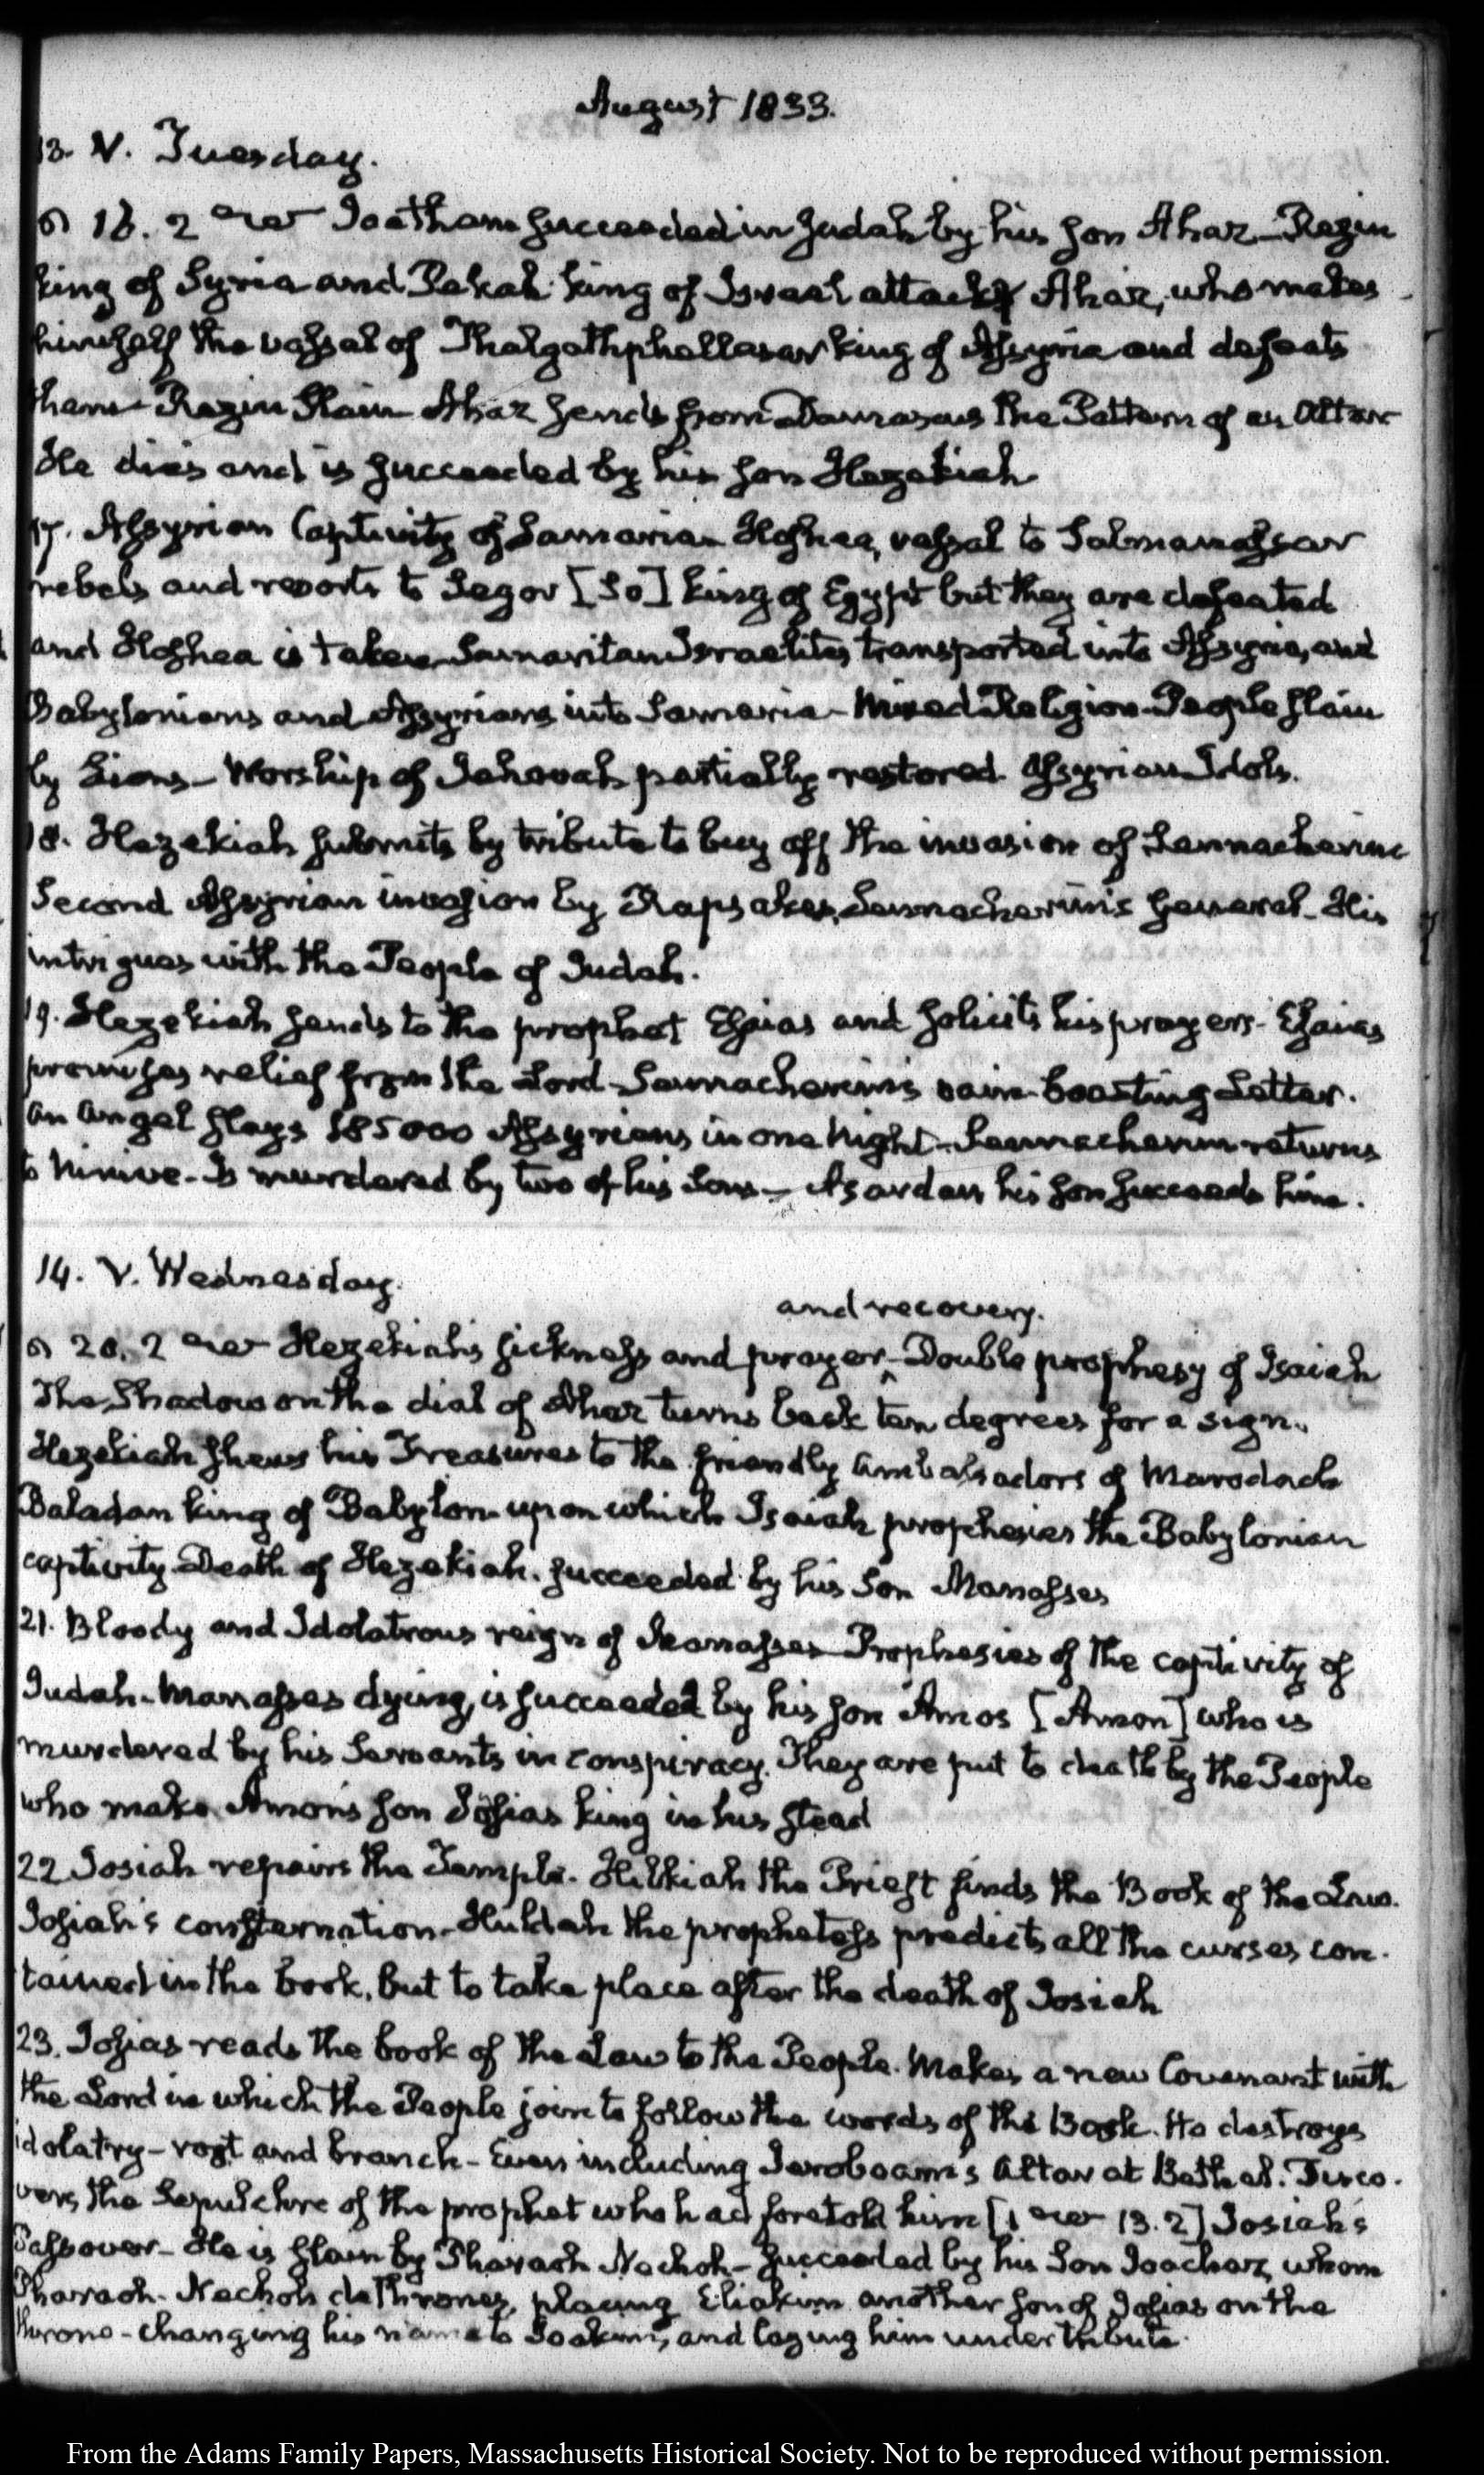 August 1833.
13. V. Tuesday.
16. 2 Joatham succeeded in Judah by his son Ahaz - Rezin
king of Syria and Pekah king of Israel attack Ahaz, who makes
himself the vassal of Thalgathphellasar king of Assyria and defeats
them - Rezin slain Ahaz sends from Damascus the Pattern of an Altar
He dies and is succeeded by his son Hezekiah
17. Assyrian Captivity of Samaria - Hoshea, vassal to Salmanassar
rebels and resorts to Segor [So] king of Egypt but they are defeated
and Hoshea is taken - Samaritan Israelites transported into Assyria, and
Babylonians and Assyrians into Samaria - Mixed Religion - People slain
by Lions - Worship of Jehovah partially restored. Assyrian Idols.
18. Hezekiah submits by tribute to buy off the invasion of Sennacherim
Second Assyrian invasion by Rapsakes, Sennacherim's General - His
intrigues with the People of Judah.
19. Hezekiah sends to the prophet Esaias and solicits his prayers - Esaias
promises relief from the Lord - Sennacherim's vain-boasting Letter.
An angel slays 185000 Assyrians in one Night - Sennacherim returns
to Ninive - Is murdered by two of his Sons - Asardan his son succeeds him.
14. V. Wednesday.
and recovery.
20. 2 Hezekiah's sickness and prayer ‸ - Double prophesy of Isaiah
The Shadow on the dial of Ahaz turns back ten degrees for a sign.
Hezekiah shews his Treasures to the friendly Ambassadors of Marodach
Baladan king of Babylon upon which Isaiah prophesies the Babylonian
captivity - Death of Hezekiah. succeeded by his Son Manasses
21. Bloody and Idolatrous reign of Manasses - Prophesies of the captivity of
Judah - Manasses dying, is succeeded by his son Amos [Amon] who is
murdered by his Servants in conspiracy. They are put to death by the People
who make Amon's son Josias king in his stead
22 Josiah repairs the Temple. Hilkiah the Priest finds the Book of the Law.
Josiah's consternation - Huldah the prophetess predicts all the curses con-
tained in the book, but to take place after the death of Josiah
23. Josias reads the book of the Law to the People. Makes a new Covenant with
the Lord in which the People join to follow the words of the Book. He destroys
idolatry - root and branch - Even including Jeroboam's Altar at Bethel. Disco-
vers the Sepulchre of the prophet who had foretold him [1 13. 2] Josiah's
Passover - He is slain by Pharaoh Nechoh - succeeded by his Son Joachaz, whom
Pharaoh-Nechoh dethrones, placing Eliakim another son of Josias on the
throne - changing his name to Joakim, and laying him under tribute.
From the Adams Family Papers, Massachusetts Historical Society. Not to be reproduced without permission.